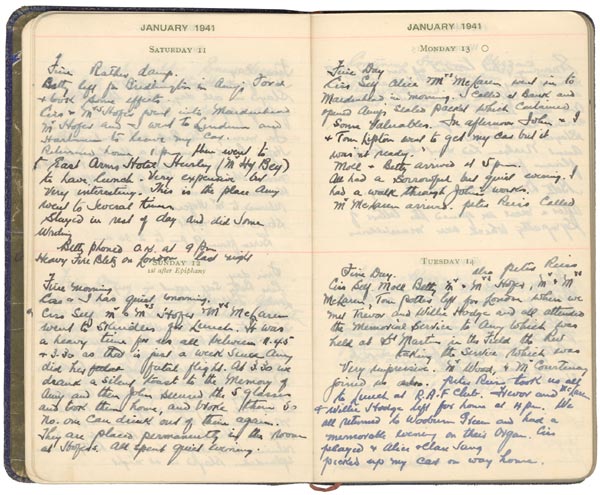 JANUARY 1941
SATURDAY 11
Fine Rather damp.
Betty left for Bridlington in Amy's Ford
& took some effects
Ciss & Mrs Hofer went into Maidenhead
Mr Hofer and I went to and
to leave my car.
Returning home I then went to
East Arms Hotel Hurley (Mr Hy Bey)
to have lunch. Very expensive but
Very interesting. This is the place Amy
went to several times
Stayed in rest of day and did some
Writing
Betty phoned at 9 p.m.
Heavy Fire Blitz on London last night
SUNDAY 12
1st after Epiphany
Fine morning
Ciss & I had quiet morning.
Ciss Self Mr & Mrs Hofer Mrs McLaren
went to Skindles for Lunch. It was
a heavy time for us all between 11.45
& 3.30 as that is just a week since Amy
did her fatal flight. At 3.30 we
drank a silent toast to the Memory of
Amy and then John secured the 5 glasses
and took them home, and broke them so
No. one can drink out of them again.
They are placed permanently in the room
at Hofers. All spent quiet evening.
JANUARY 1941
MONDAY 13
Fine Day
Ciss Self Alice Mrs McLaren went in to
Maidenhead in morning. I called at Bank and
opened Amy's sealed packet which contained
some Valuables. In afternoon John & I
& Tom Lipton went to get my car but it
was not ready.
Moll & Betty arrived at 5 pm.
All had a sorrowful but quiet evening. I
had a walk through John's works.
Mr McLaren arrived. Peter Reiss Called
TUESDAY 14
Fine Day. also Peter Reiss
Ciss Self Moll Betty Mr & Mrs Hofer, Mr & Mrs
McLaren, Tom left for London when we
met Trevor and Willie Hodge and all attended
the Memorial Service to Amy which was
held at St Martin in the Field the Rev
taking the Service which was
Very impressive. Mr Wood, & Mr Courtenay
joined us also. Peter Reiss took us all
to lunch at R.A.F Club. Trevor and
& Willie Hodge left for home at 4 pm. We
all returned to Wooburn Green and had a
memorable evening on their Organ. Ciss
played & Alice & Clan Sang
picked up my car on way home.